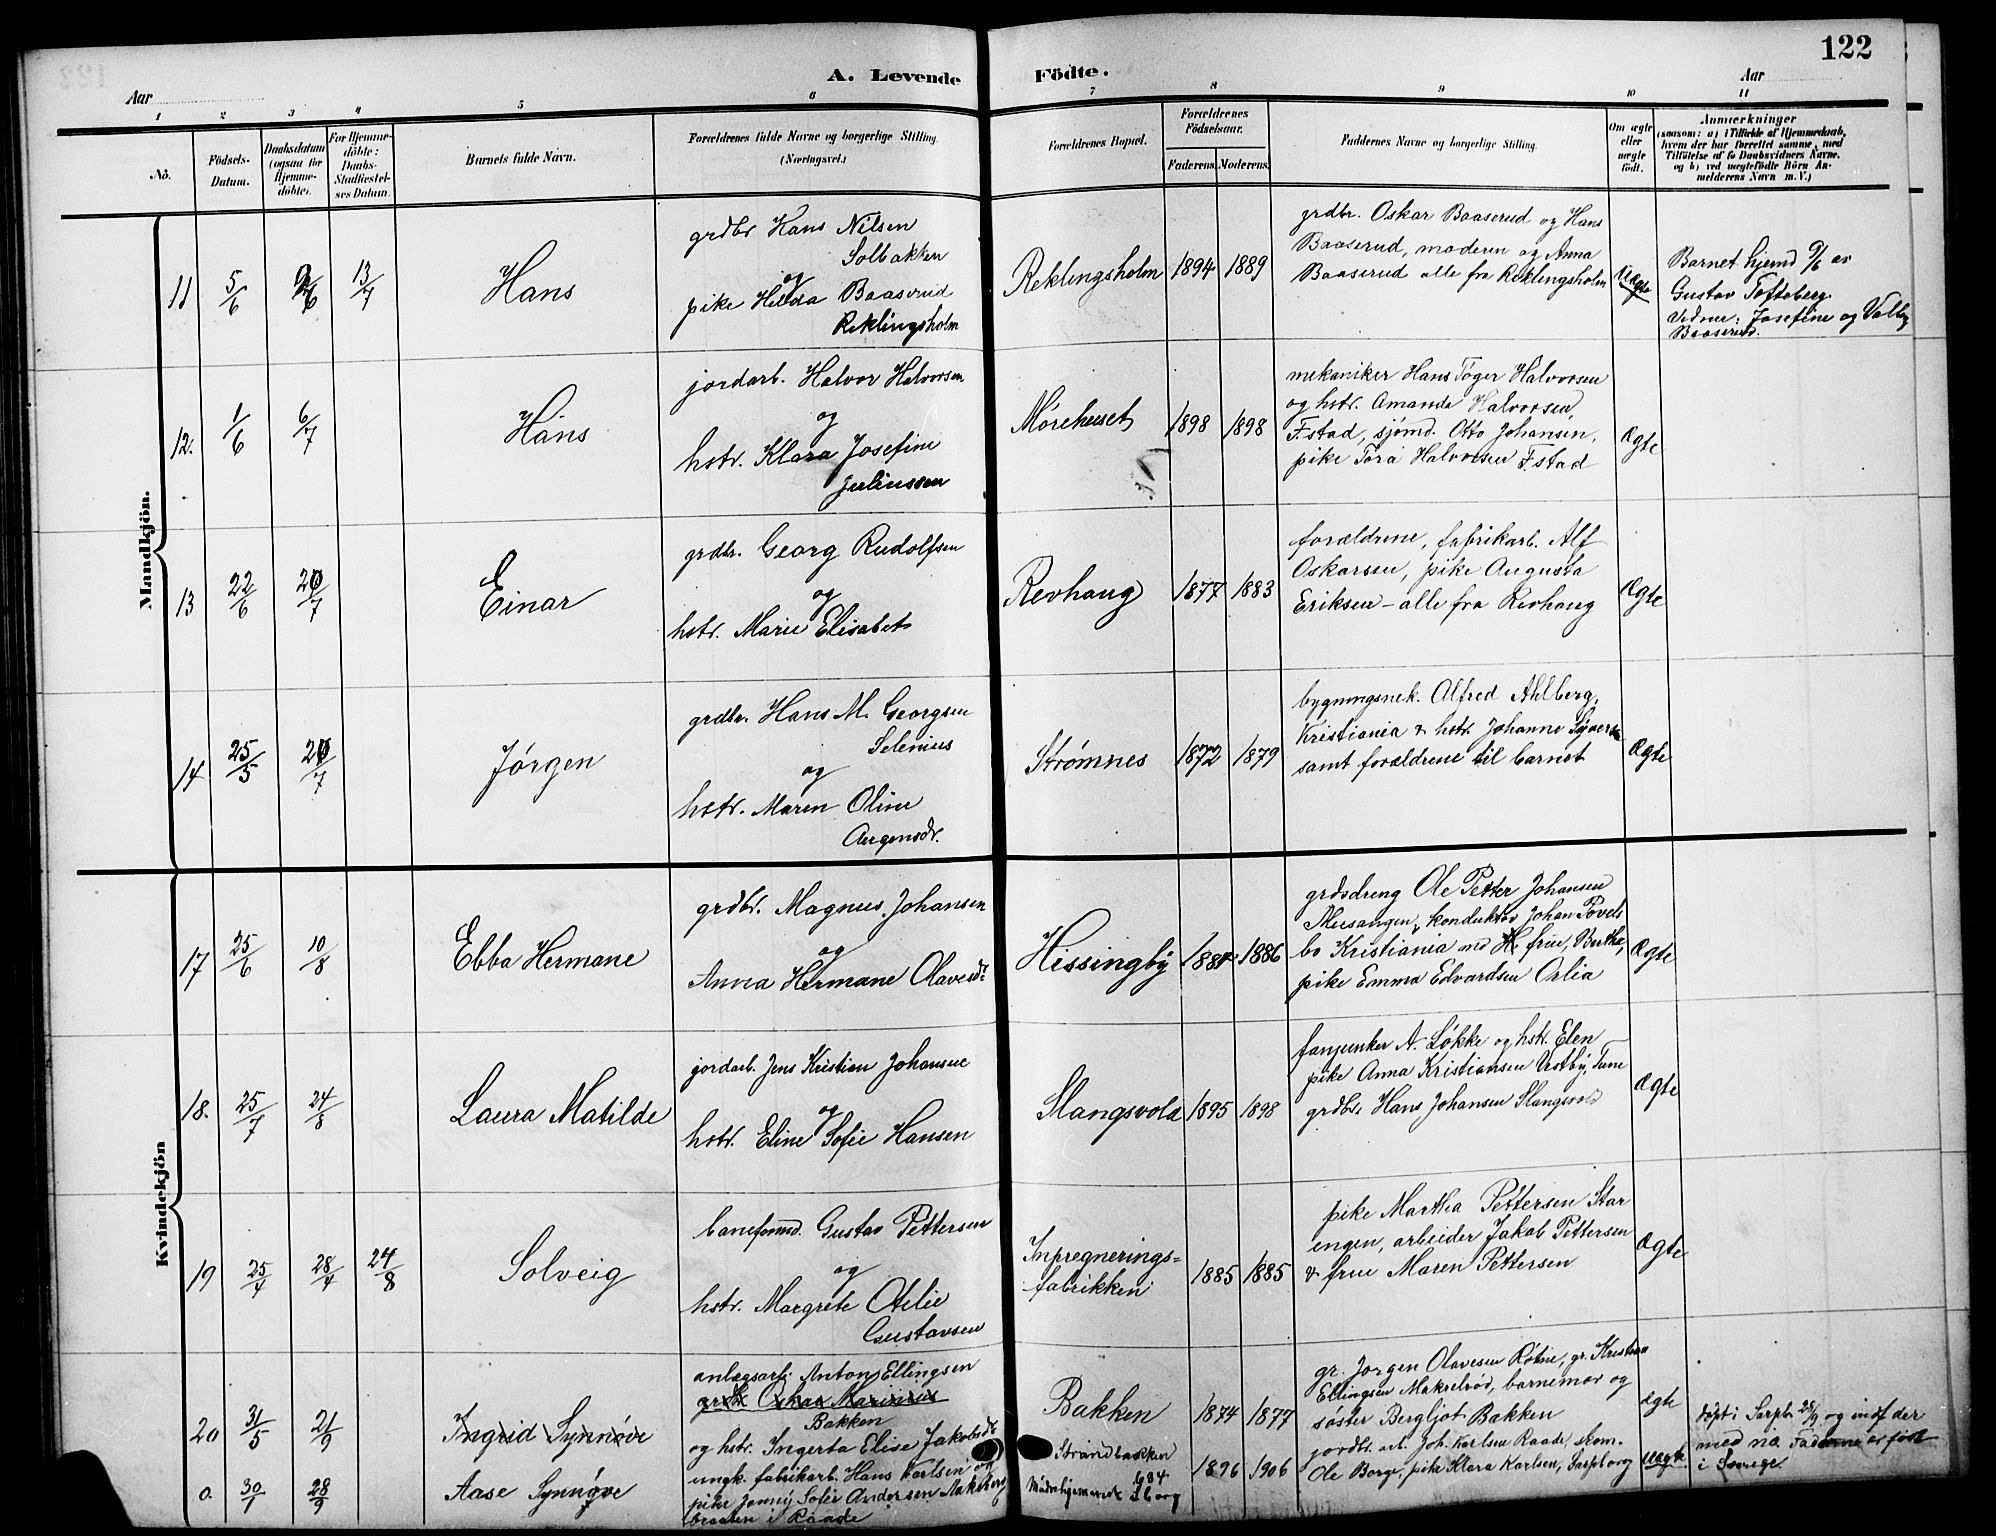 122
A. Levende Födte.
Aar
Aar
1 2 3 4 5 6 7 8 9 10 11
No.
Födsels-Datum.
Daabsdatum (ogsaa for Hjemme-döbte).
For Hjemme-döbte: Daabs-Stadfæstel-ses Datum.
Barnets fulde Navn.
Forældrenes fulde Navne og borgerlige Stilling. (Næringsvei.)
Forældrenes Bopæl.
Forældrenes Födselsaar.
Faderens.
Moderens.
Faddernes Navne og borgerlige Stilling.
Om ægte eller uægte födt.
Anmærkninger
(saasom: a) i Tilfælde af Hjemmedaab,
hvem der har forrettet samme, med
Tilföielse af to Daabsvidners Navne,
og b) ved uægtefödte Börn An-
melderens Navn m. V.)
Mandkjön.
11 5/6 9/6 13/7 Hans
grdbr Hans Nilsen
Solbakken
og
pike Hilda Baaserud
Reklingsholm
Reklingsholm 1894 1889
grdbr. Oskar Baaserud og Hans
Baaserud, moderen og Anna
Baaserud alle fra Reklingsholm
Uægte
Barnet hjemd 9/6 av
Gustav Tofteberg.
Vidner: Josefine og Valbg
Baaserud.
12. 1/6 6/7 Hans
jordarb. Halvor Halvorsen
og
hstr. Klara Josefine
Juliussen
Mörehuset 1898 1898
mekaniker Hans Töger Halvorsen
og hstr. Amanda Halvorsen,
F.stad, sjömd. Otto Johansen,
pike Tora Halvorsen F.stad
Ægte
13 22/6 20/7 Einar
grdbr. Georg Rudolfsen
og
hstr. Marie Elisabet
Revhaug 1877 1883
forældrene, fabrikarb. Alf
Oskarsen, pike Augusta
Eriksen - alle fra Revhaug
Ægte
14 25/5 20/7 Jørgen
grdbr. Hans M. Georgsen
Selenius
og
hstr. Maren Oline
Augensdr.
Strømnes 1872 1879
bygningsnek. Alfred Ahlberg,
Kristiania & hstr. Johanne
samt forældrene til barnet
Ægte
Kvindekjön
17 25/6 10/8 Ebba Hermane
grdbr. Magnus Johansen
og
Anna Hermane Olavesdr.
Hissingby 1886
grdsdreng Ole Petter Johansen
konduktør Johan Povels
bo Kristiania med frue, Berthe,
pike Emma Edvardsen Orlia
Ægte
18. 25/7 24/8 Laura Matilde
jordarb. Jens Kristian Johansen
og
hstr. Eline Sofie Hansen
Slangsvold 1895 1898
fanjunker A. Løkke og hstr. Elen
pike Anna Kristiansen Vestby, Tune
grdbr. Hans Johansen Slangsvold
Ægte
19 25/4 28/4 24/8 Solveig
baneformd. Gustav Pettersen
og
hstr. Margrete Otilie
Gustavsen
Inpregnerings=
fabrikken 1885 1885
pike Martha Pettersen Stor
engen, arbeider Jakob Pettersen
& frue Maren Pettersen
Ægte
20 31/5 21/9 Ingrid Synnøve
anlægsarb. Anton Ellingsen
grdb Oskar Marinius
Bakken
og hstr. Ingerta Elise Jakobsdtr
Bakken 1874 1877
gr. Jörgen Olavesen Rötne, gr. Kristian
Ellingsen Makrelröd, barnemor og
söster Bergljot Bakken
Ægte
0. 30/1 28/9 Aase Synnøve
ungk. fabrikarb. Hans Karlsen og
pike Jenny Sofie Andersen
braaten i Raade
Strandbakken
634
Mödrehjemmet Sborg
1896 1906
jordbr. arb. Joh. Karlsen Raade, skom.
Ole Borge, pike Klara Karlsen, Sarpborg
Uægte
döpt i Sarpb. 28/9 og indf der
med no. Faderne er född
i Sverige.